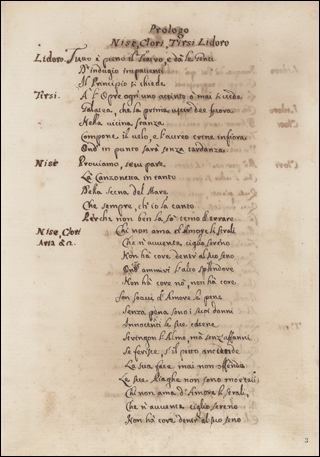 Prologo
Nise, Clori, Tirsi, Lidoro
Lidoro. Tutto è pieno il Teatro, e dà le Genti
D'indugio impatienti
Il Principio si chiede
Tirsi. A l'Opre ogni uno accinto è mai si veda
Galatea, che la prima uscir dee fuora
Nella vicina stanza
Compone il velo, e l'aureo crine infiora
Ond' in punto sarà senza tardanza
Nise Proviamo, se vi pare
La Canzonetta in tanto
Della scena del Mare
Che sempre, ch'io la canto
Perche non ben la sò temo d'errare
Nise, Clori
Aria à 2.
Chi non ama d'Amore li strali
Che n'avventa ciglio sereno
Non hà core dentr' al suo seno
Ond' ammiri l'alto splendore
Non hà core nò, non hà core
Son soavi d'Amore le pene
Senza pena sono i suoi danni
Innocenti le sue catene
Stringon l'Alme, mà senz' affanni
Se ferisce, s'il petto
La sua face mai non offende
Le sue Piaghe non sono mortali
Chi non ama d'Amore li strali,
Che n'avventa ciglio sereno
Non hà core dentr' al suo seno
3